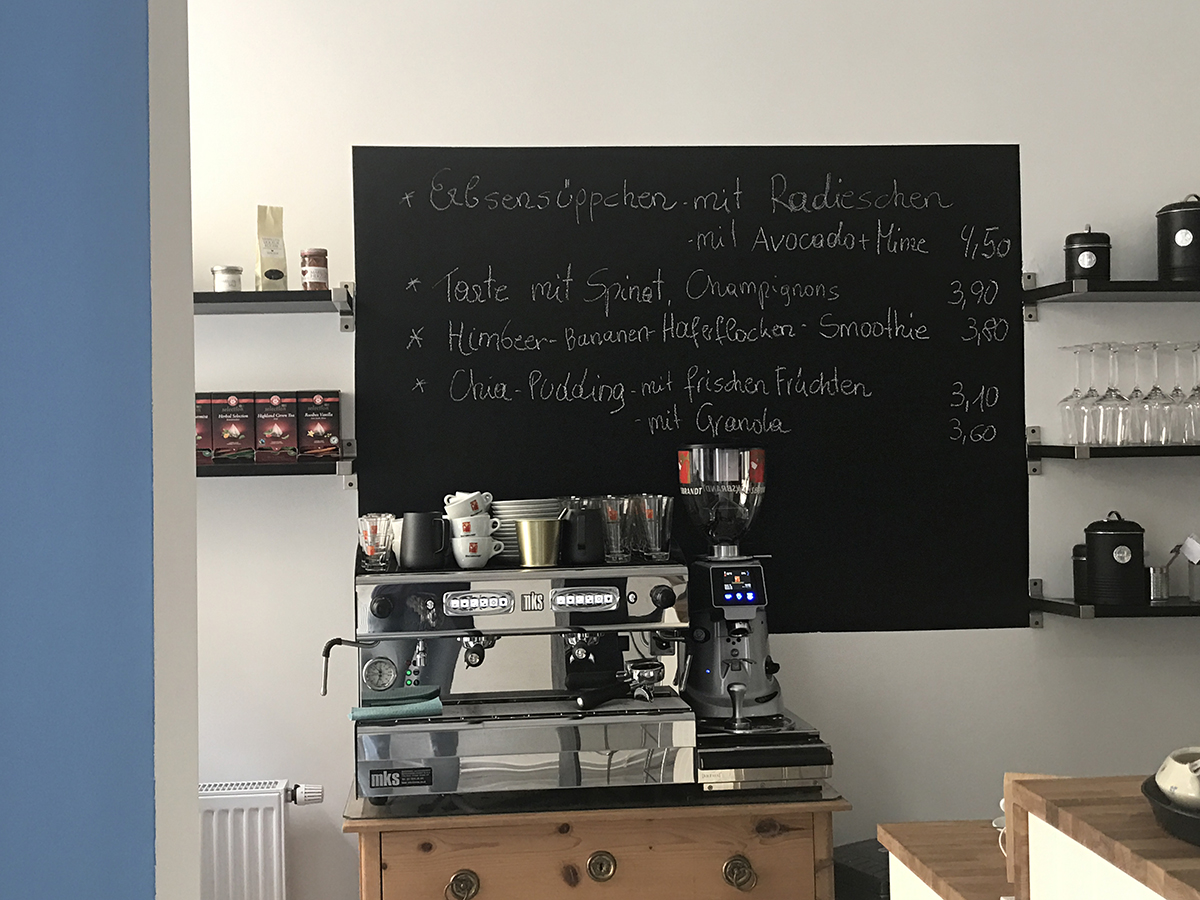 * Erbsensüppchen - mit Radieschen
- mit Avocado + Minze 4,50
* Tarte mit Spinat, Champignons 3,90
* Himbeer-Bananen-Haferflocken-Smoothie 3,80
* Chia-Pudding - mit frischen Früchten 3,10
- mit Granola 3,60
selection
Herbal Selection
selection
Highland Green Tea
selection
Rooibos Vanilla
BRANDT
mks
mks